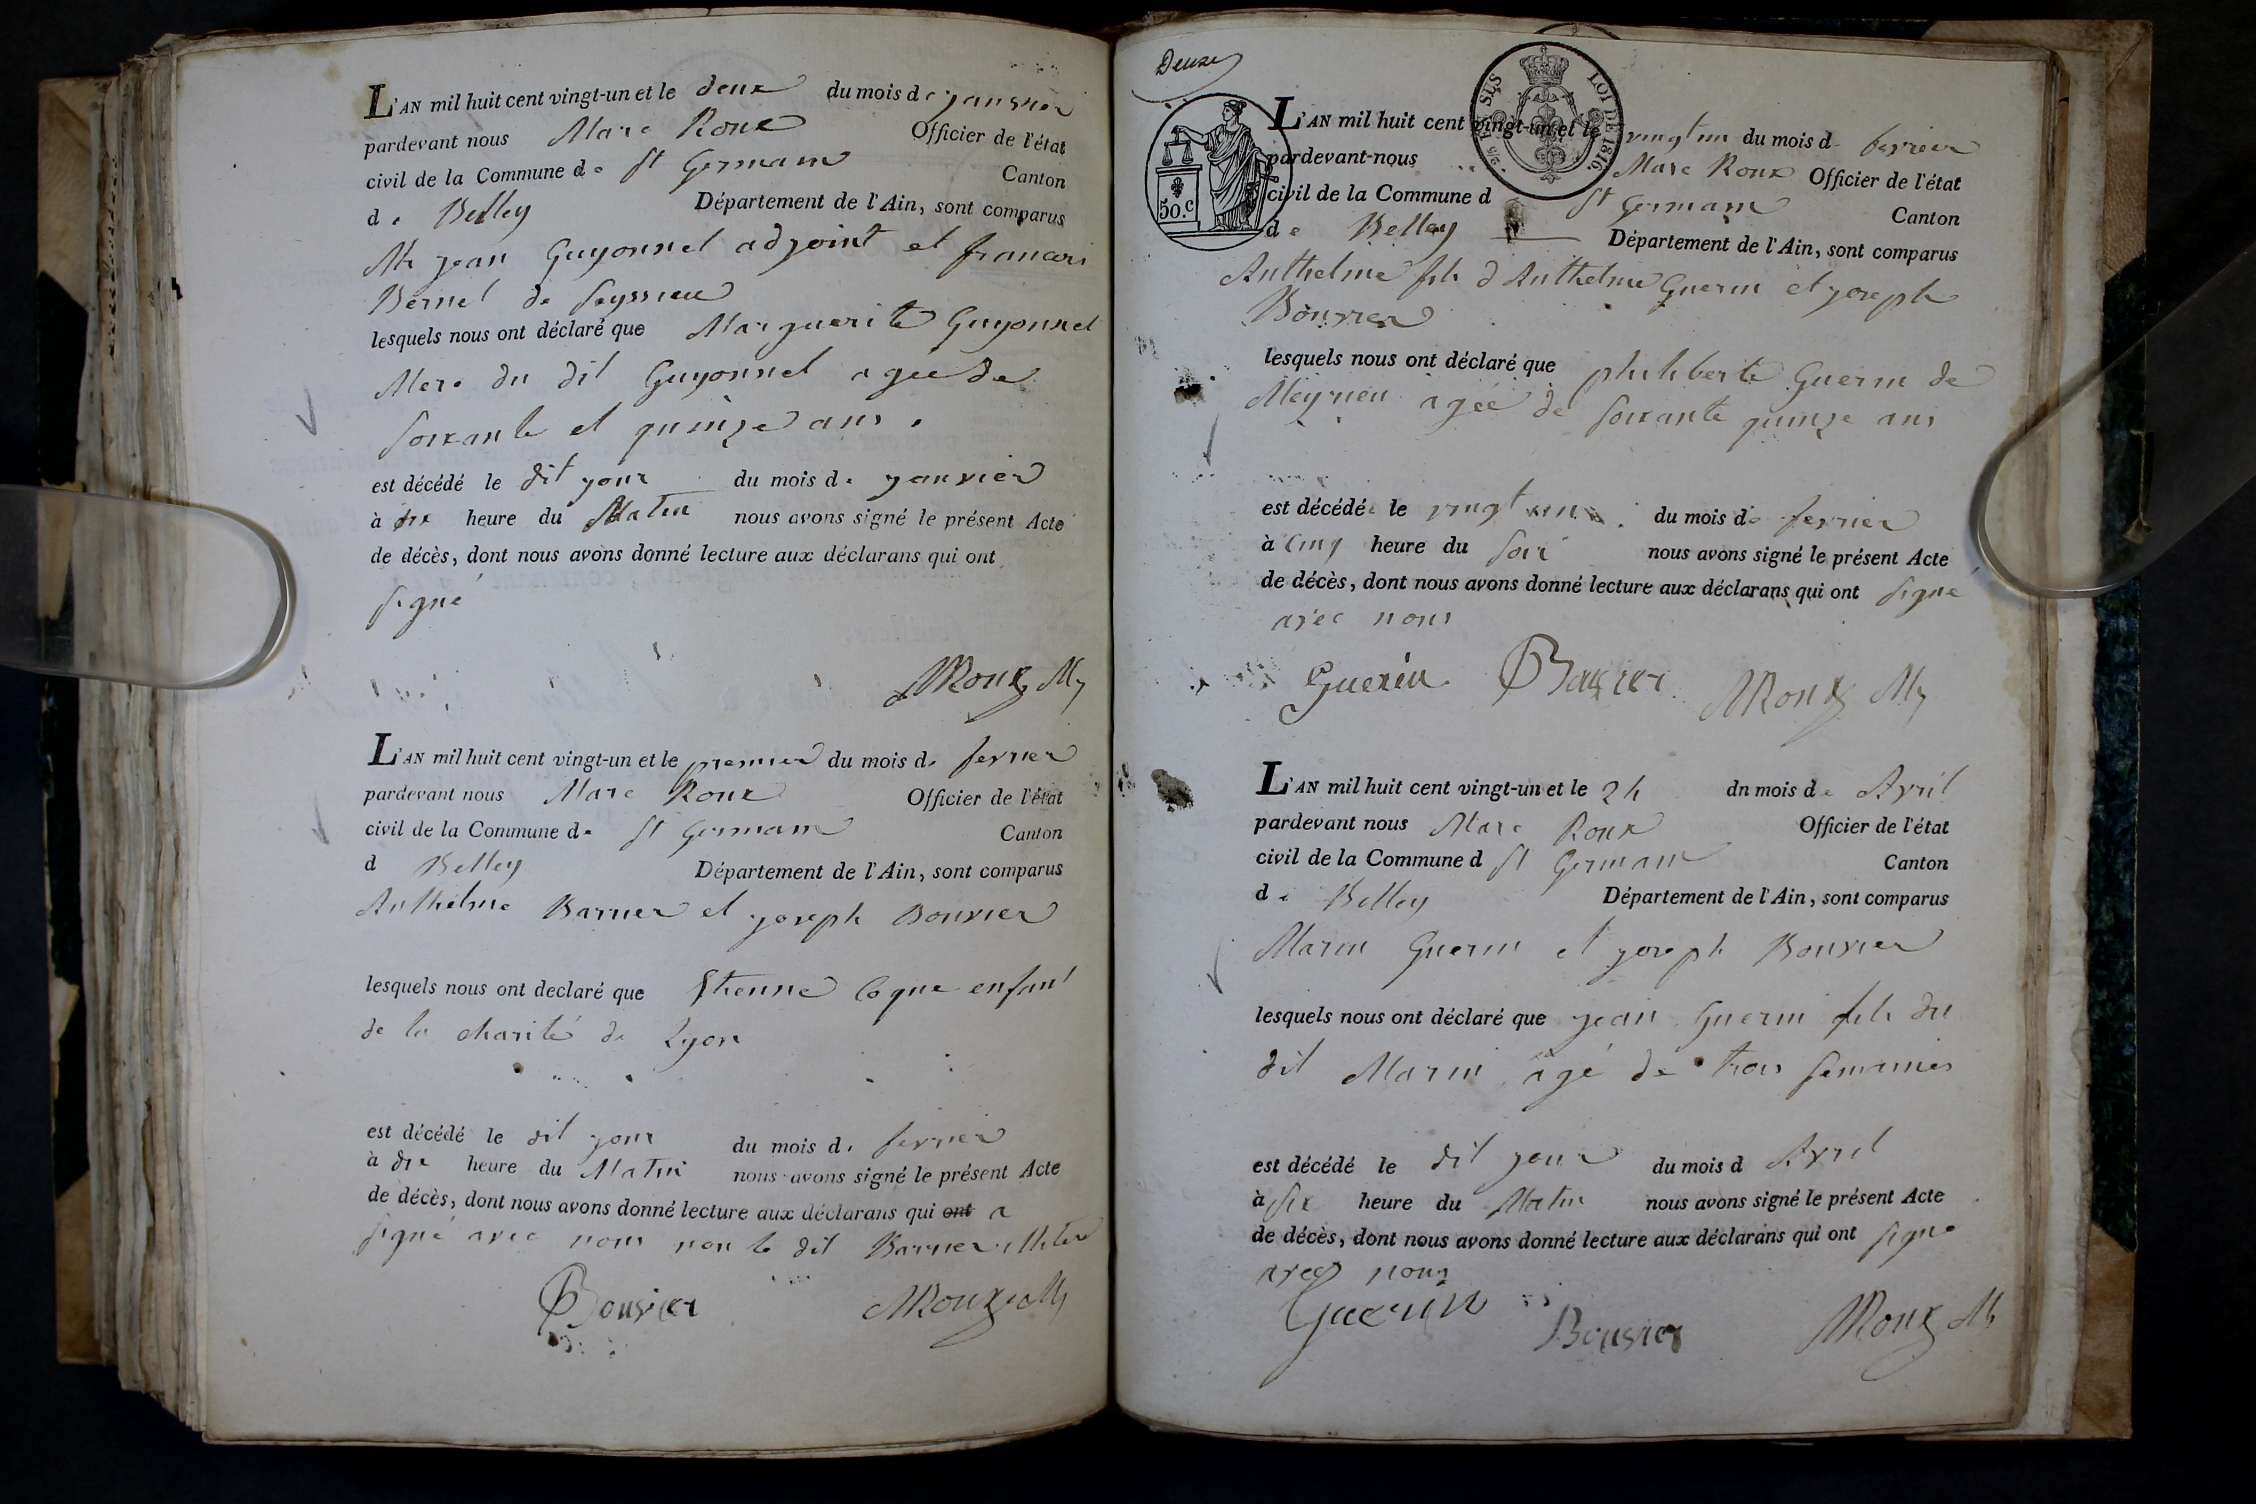 L'AN mil huit cent vingt-un et le deux du mois de janvier
pardevant nous Marc Roux Officier de l'état
civil de la Commune de St Germain Canton
de Belley Département de l'Ain, sont comparus
Mr jean Guyonnet adjoint et francois
Bernel de Seyssieu
lesquels nous ont déclaré que Marguerite Guyonnet
Mere du dit Guyonnet agée de
soixante et quinze ans.
est décédé le dit jour du mois de janvier
à dix heure du Matin nous avons signé le présent Acte
de décès, dont nous avons donné lecture aux déclarans qui ont
signé
MRoux M
L'AN mil huit cent vingt-un et le premier du mois de fevrier
pardevant nous Marc Roux Officier de l'état
civil de la Commune de St Germain Canton
d Belley Département de l'Ain, sont comparus
Anthelme Barner et joseph Bouvier
lesquels nous ont declaré que Etienne Coque enfant
de la charité de Lyon
est décédé le dit jour du mois de fevrier
à dix heure du Matin nous avons signé le présent Acte
de décès, dont nous avons donné lecture aux déclarans qui ont a
signé avec nous non le dit Barner
Bouvier MRoux M
Deuxe
SLS LOI DE 1816
50.C
L'AN mil huit cent vingt-un et le vingt un du mois d fevrier
pardevant-nous Marc Roux Officier de l'état
civil de la Commune d St Germain Canton
de Belley Département de l'Ain, sont comparus
Anthelme fils d'Anthelme Guerin et joseph
Bouvier
lesquels nous ont déclaré que philiberte Guerin de
Meyrieu agée de soixante quinze ans
est décédée le vingt un du mois de fevrier
à cinq heure du soir nous avons signé le présent Acte
de décès, dont nous avons donné lecture aux déclarans qui ont signé
avec nous
Guerin Bouvier MRoux M
L'AN mil huit cent vingt-un et le 24 dn mois de Avril
pardevant nous Marc Roux Officier de l'état
civil de la Commune d St Germain Canton
de Belley Département de l'Ain, sont comparus
Marin Guerin et joseph Bouvier
lesquels nous ont déclaré que jean Guerin fils du
dit Marin agé de trois semaines
est décédé le dit jour du mois d Avril
à six heure du Matin nous avons signé le présent Acte
de décès, dont nous avons donné lecture aux déclarans qui ont signé
avec nous
Guerin Bouvier MRoux M